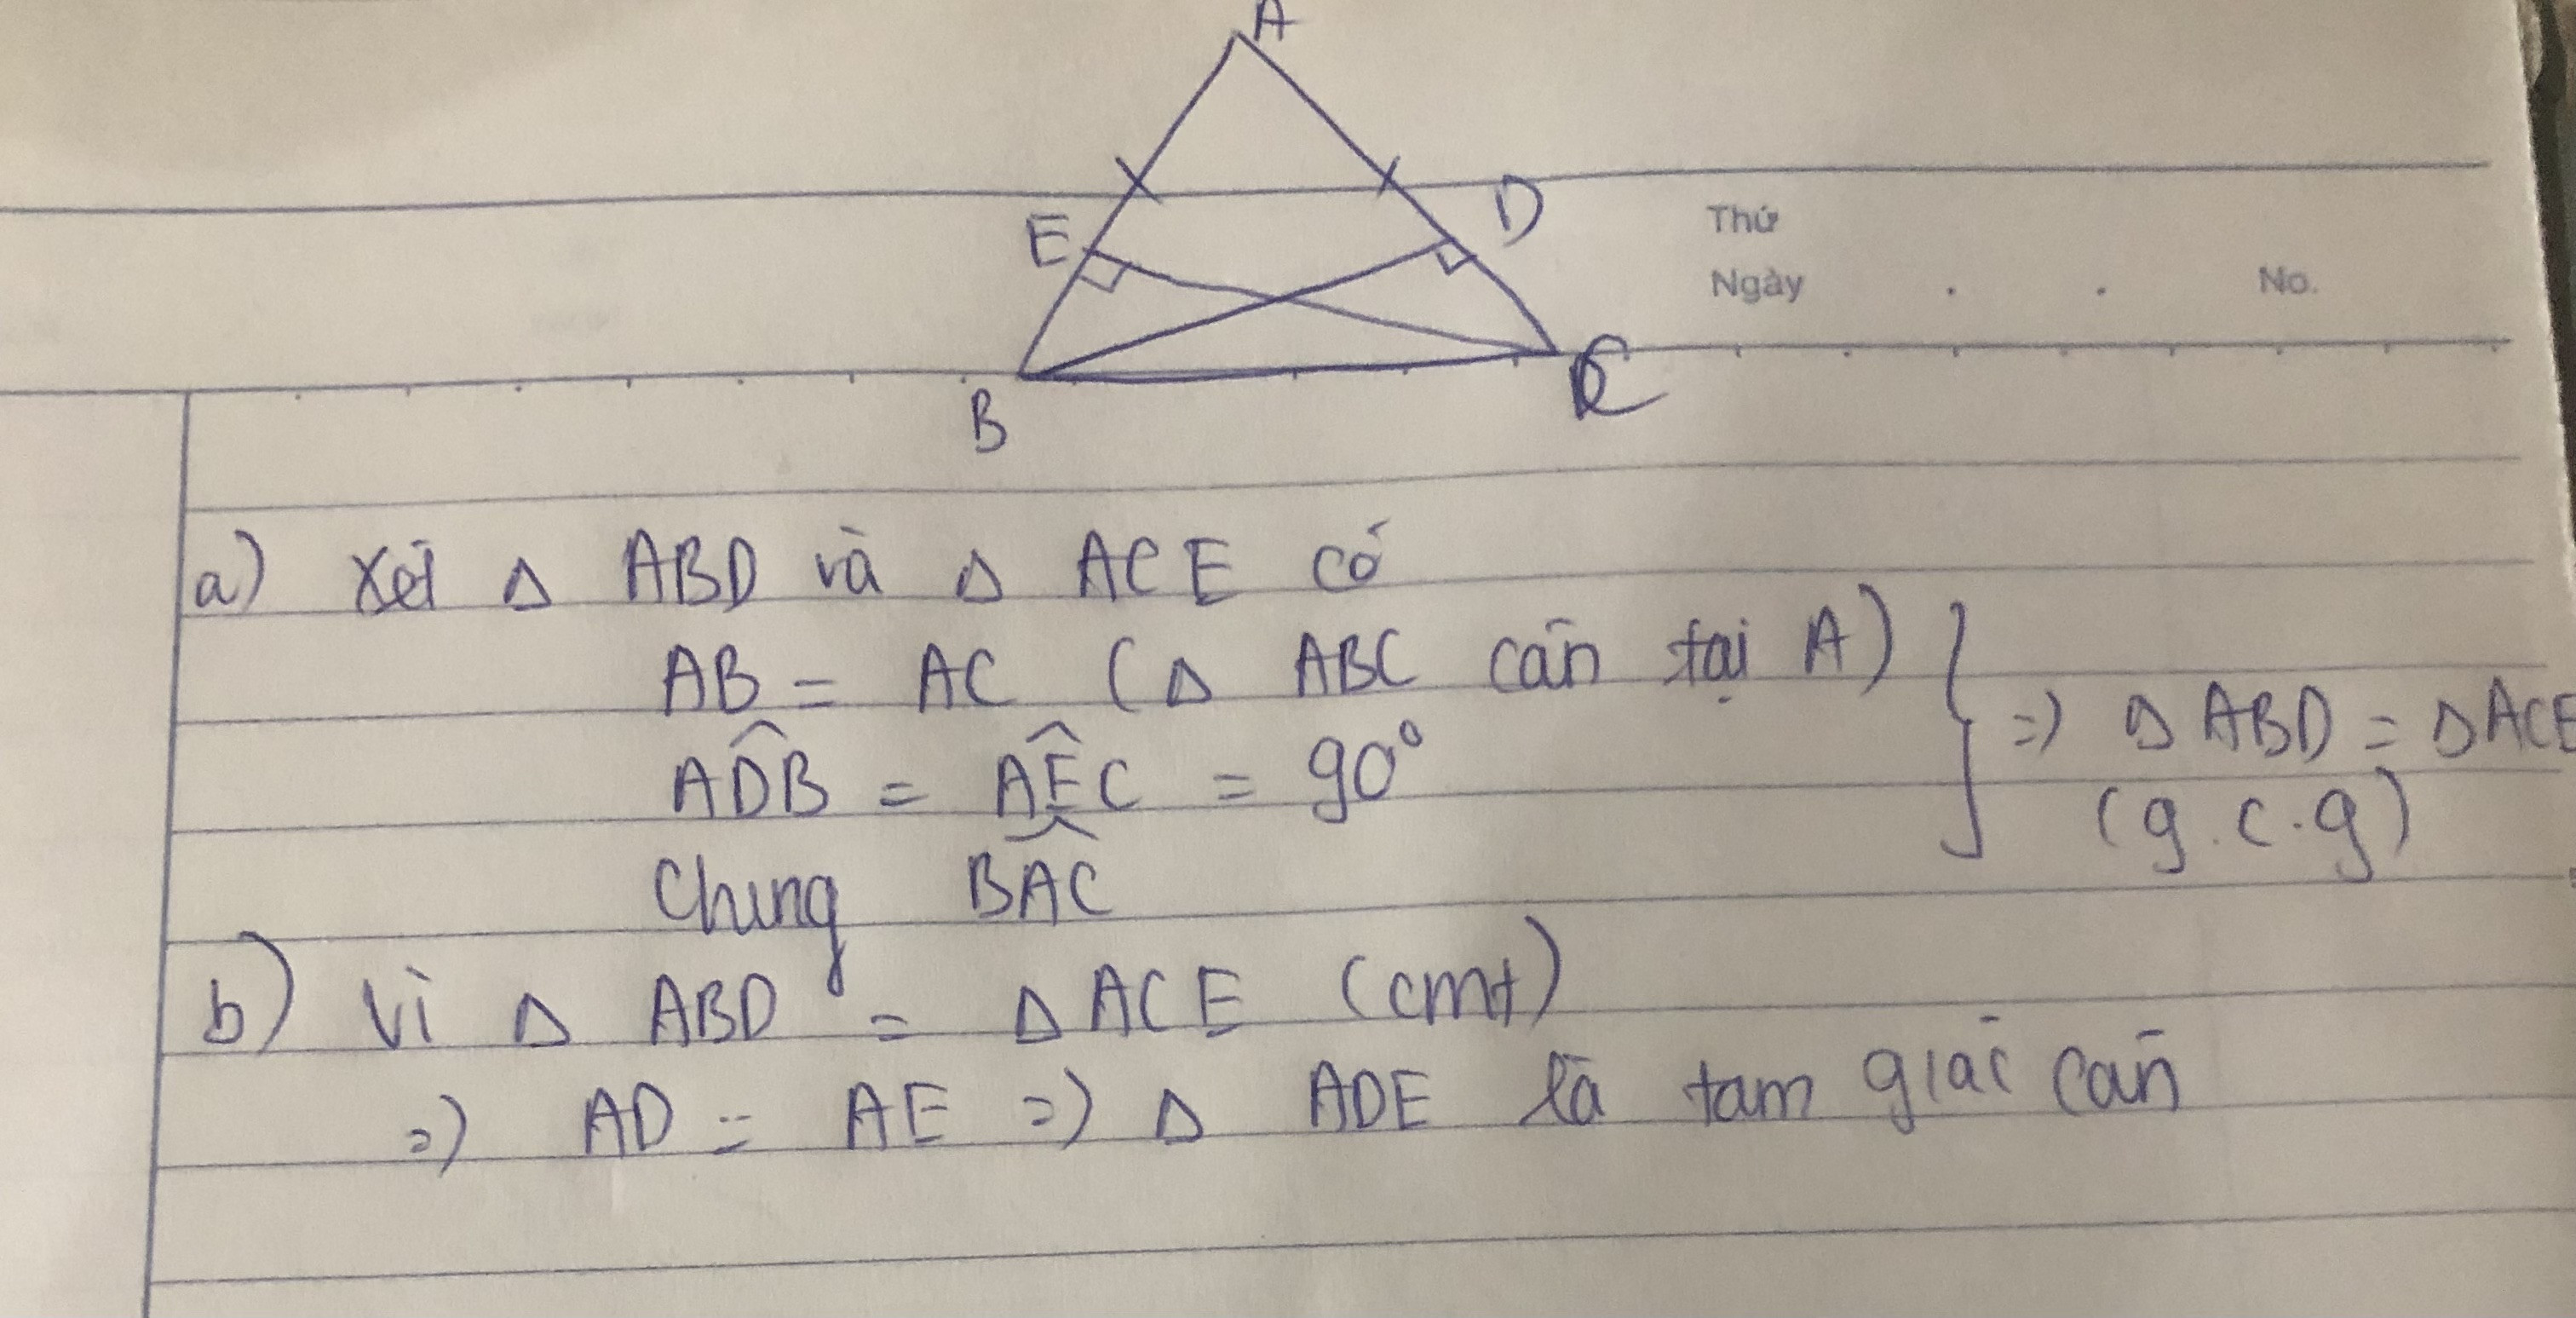 A
E
D
Thứ
Ngày . . No.
B
C
a) Xét Δ ABD và Δ ACE có
AB = AC (Δ ABC cân tại A)
ADB̂ = AÊC = 90°
Chung BÂC
=) Δ ABD = Δ ACE
(g.c.g)
b) Vì Δ ABD = Δ ACE (cmt)
=) AD = AE =) Δ ADE là tam giác cân